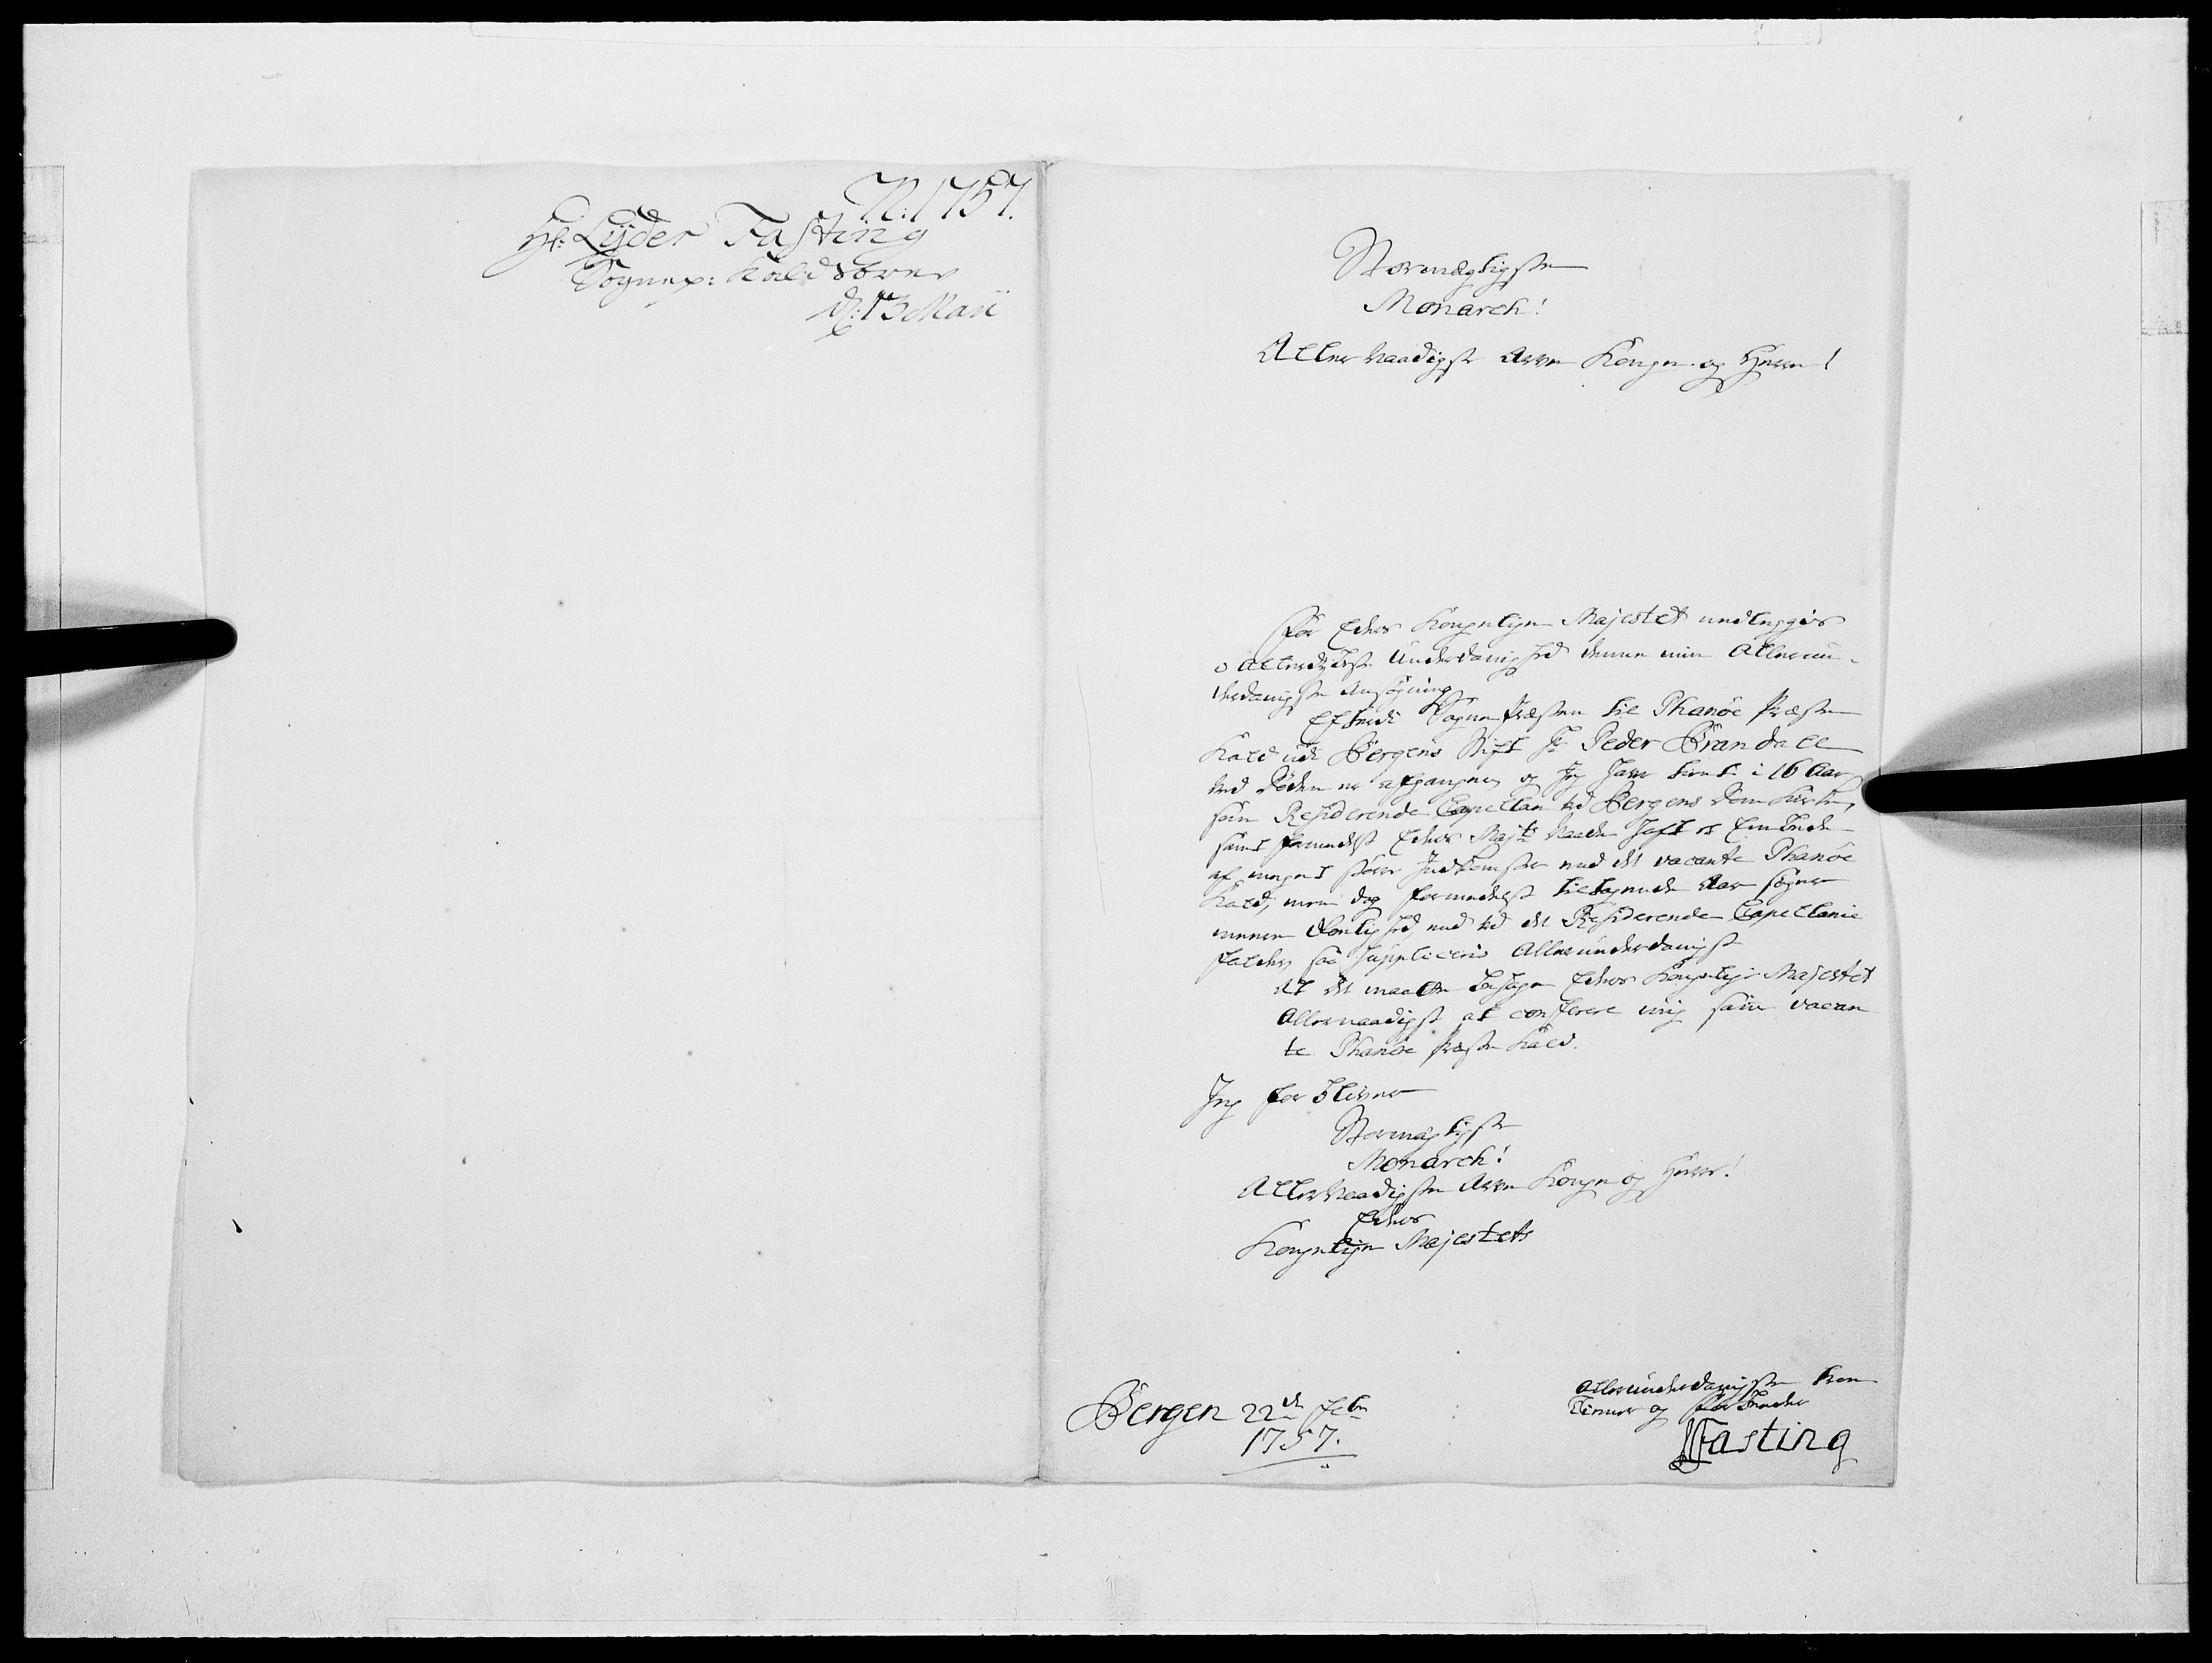 N: 1757.
Hr: Lÿder Fasting
Sognep: Kaldsbrev
d: 13 Maii
Stormægtigste
Monarch!
Allernaadigste Arve Konge og Herre!
For Eders Kongelige Majestet nedlegges
i allerdybeste Underdanighed denne min Allerun-
derdanigste Ansøgning
Efterdi Sogne Præsten til Phanöe Præste
Kald udi Bergens Stift Hr Peder Brandall
ved Døden er afgangen, og Jeg haver tient i 16 Aar
som Residerende Capellan ved Bergens Dom Kirke,
samt formedelst Eders Majts Naade haft et Embede
af meget større Indkomster end det vacante Phanöe
Kald, men dog formedelst tiltagende Aar søger
meere Roelighed, end ved det Residerende Capellanie
falder, saa suppliceris Allerunderdanigst
At det maatte behage Eders Kongelige Majestet
Allernaadigst at conferere mig samme vacan
te Phanöe Præste Kald.
Jeg forbliver
Stormægtigste
Monarch!
Allernaadigste Arve Konge og Herre!
Eders
Kongelige Majestets
Bergen 22de Febr
1757.
Allerunderdanigste troe
Tiener og forbeder
LFasting